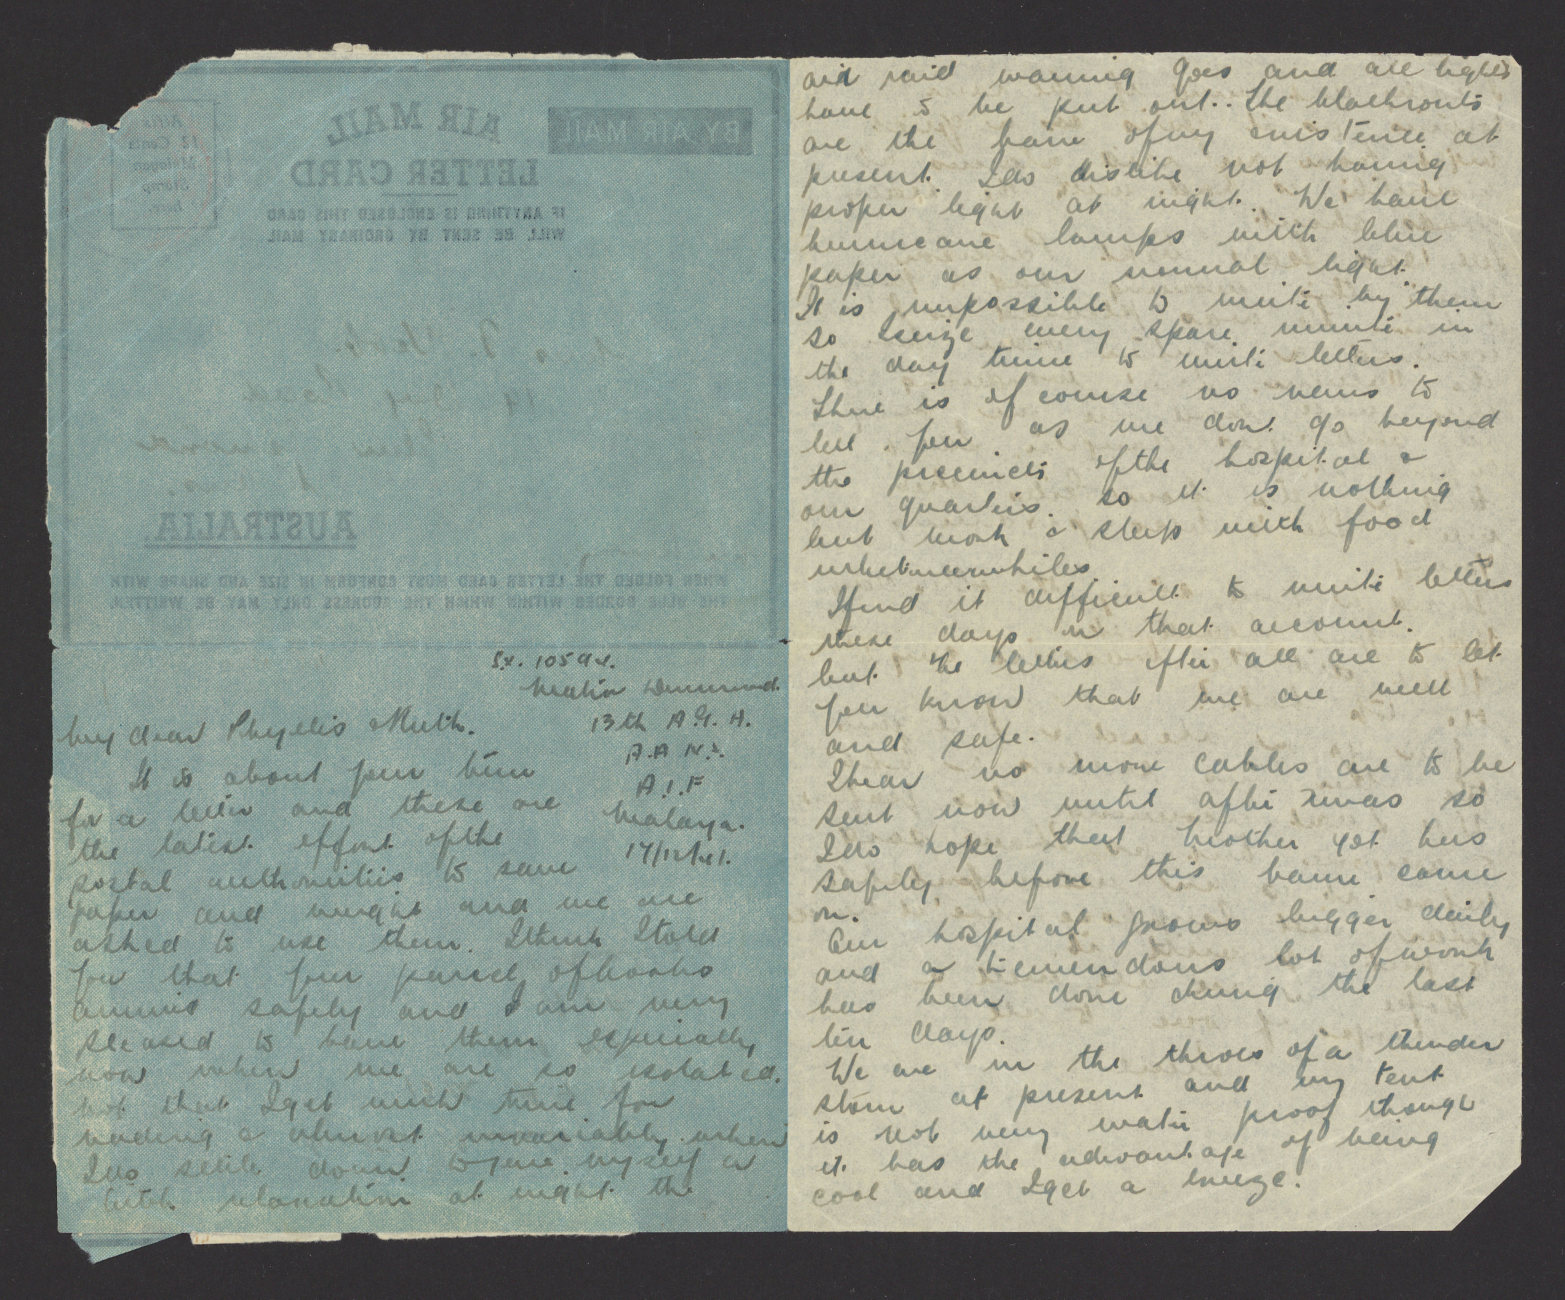 AIR MAIL
BY AIR MAIL
LETTER CARD
IF ANYTHING IS ENCLOSED THIS CARD
WILL BE SENT BY ORDINARY MAIL
Road
AUSTRALIA.
WHEN FOLDED THE LETTER CARD MUST CONFORM IN SIZE AND SHAPE WITH
THE BLUE BORDER WITHIN WHICH THE ADDRESS ONLY MAY BE WRITTEN.
Sx. 10594.
Matron Drummond.
13th A.G.H.
A.A.N.S.
A.I.F
Malaya.
17/12/41.
My dear Phyllis & Ruth.
It is about your turn
for a letter and these are
the latest effort of the
postal authorities to save
paper and weight and we are
asked to use them. I think I told
you that your parcel of books
arrived safely and I am very
pleased to have them especially
now when we are so isolated.
Not that I get much time for
reading & almost invariably when
I do settle down to give myself a
little relaxation at night the
air raid warning goes and all lights
have to be put out. The blackouts
are the bane of my existence at
present. I do dislike not having
proper light at night. We have
hurricane lamps with blue
paper as our normal light.
It is impossible to write by them
so I seize every spare minute in
the day time to write letters.
There is of course no news to
tell you as we dont go beyond
the precincts of the hospital &
our quarters. so it is nothing
but work & sleep with food
inbetweenwhiles
I find it difficult to write letters
these days on that account.
but the letters after all are to let
you know that we are well
and safe.
I hear no more cables are to be
sent now until after Xmas so
I do hope that Mother got hers
safely before this bann came
on.
Our hospital grows bigger daily
and a tremendous lot of work
has been done during the last
ten days.
We are in the throes of a thunder
storm at present and my tent
is not very water proof though
it has the advantage of being
cool and I get a breeze.